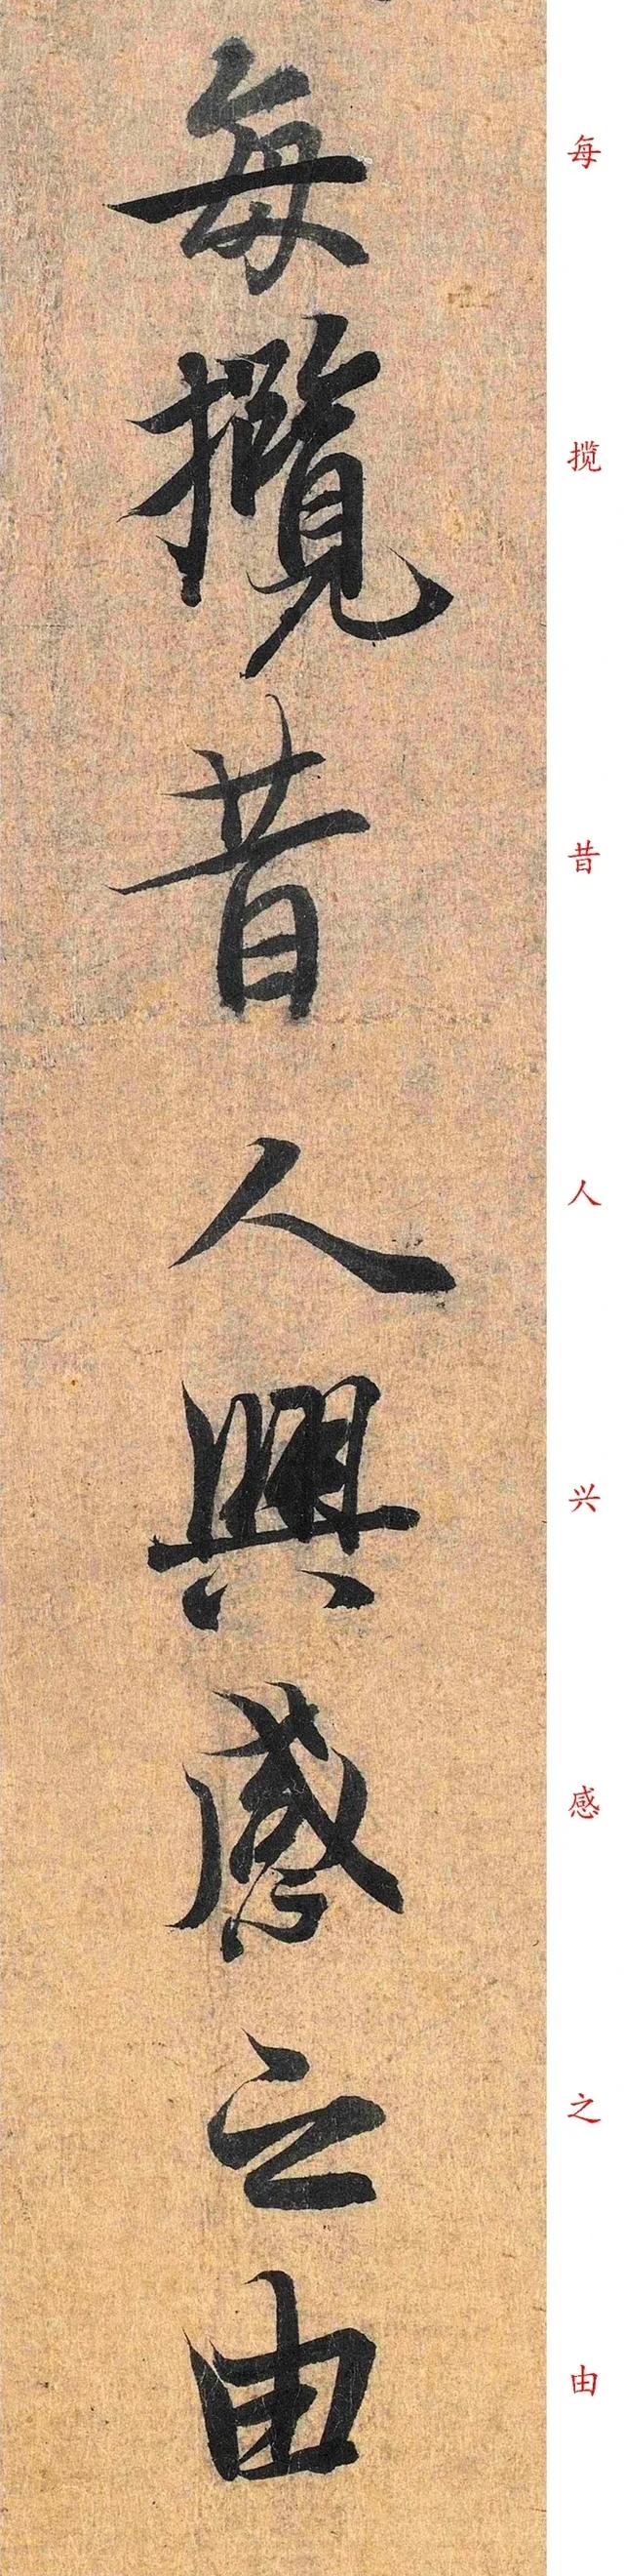 每攬昔人興感之由
每揽昔人兴感之由